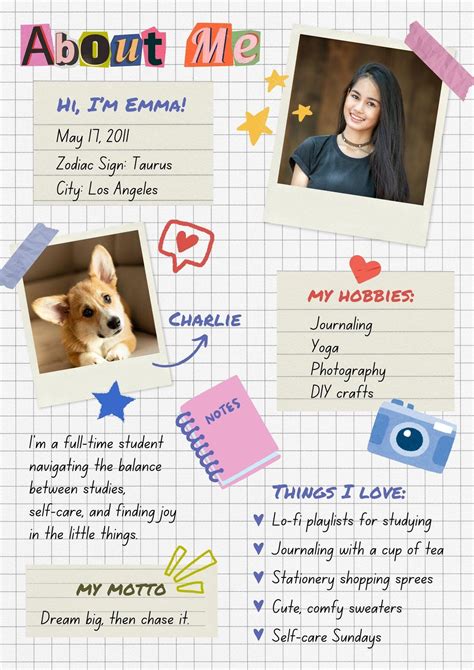 About Me
Hi, I'm Emma!
May 17, 2011
Zodiac Sign: Taurus
City: Los Angeles
Charlie
My Hobbies:
Journaling
Yoga
Photography
DIY crafts
NOTES
I'm a full-time student
navigating the balance
between studies,
self-care, and finding joy
in the little things.
My Motto
Dream big, then chase it.
Things I Love:
Lo-fi playlists for studying
Journaling with a cup of tea
Stationery shopping sprees
Cute, comfy sweaters
Self-care Sundays